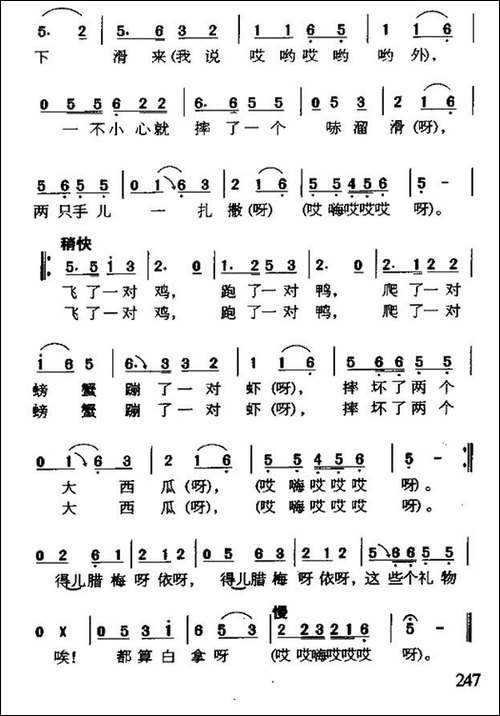 5. 2 | 5. 6 3 2 | 1 1 6 5 6 5 | 1 1 6 |
下 滑 来(我 说 哎 哟 哎 哟 哟 外),
0 5 5 6 2 2 | 5. 6 3 2 | 0 5 3 | 2 1 6 |
一 不 小 心 就 摔 了 一 个 哧 溜 滑(呀),
5 6 5 5 | 0 1 6 3 | 2 1 6 | 5 5 4 5 6 | 5 - |
两 只 手 儿 一 扎 撒(呀) (哎 嗨 哎 哎 哎 呀)。
稍快
5. 5 i 3 | 2. 0 | 1. 2 5 3 | 2. 0 | 2. 1 2 2 |
飞 了 一 对 鸡, 跑 了 一 对 鸭, 爬 了 一 对
飞 了 一 对 鸡, 跑 了 一 对 鸭, 爬 了 一 对
i 6 5 | 6. 3 3 2 | 1 1 6 | 5 5 6 6 5 5 |
螃 蟹 蹦 了 一 对 虾(呀), 摔 坏 了 两 个
螃 蟹 蹦 了 一 对 虾(呀), 摔 坏 了 两 个
0 1 6 3 | 2 1 6 | 5 5 4 5 6 | 5 - :|
大 西 瓜(呀), (哎 嗨 哎 哎 哎 呀)。
大 西 瓜(呀), (哎 嗨 哎 哎 哎 呀)。
0 2 6 1 | 2 1 2 | 0 5 6 1 | 2 1 2 | 5 6 6 5 5 |
得儿腊 梅 呀 依呀, 得儿腊 梅 呀 依呀, 这 些 个 礼 物
慢
0 X | 0 5 3 i | 6 5 3 | 2 2 3 2 1 6 | 5 - ‖
唉! 都 算 白 拿 呀 (哎 哎嗨哎哎哎 呀)。
247